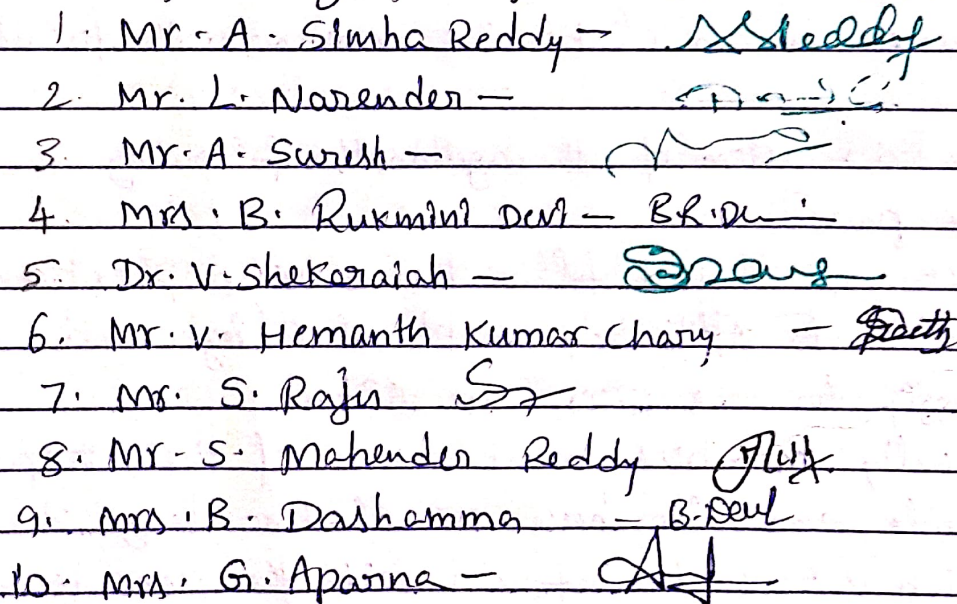 1. Mr. A. Simha Reddy - 
2. Mr. L. Narender -
3. Mr. A. Suresh -
4. Mrs. B. Rukmini Devi - B.R.De
5. Dr. V. Shekaraiah -
6. Mr. V. Hemanth Kumar Chary -
7. Mr. S. Raju
8. Mr. S. Mahender Reddy
9. Mrs. B. Dashamma - B.Devi
10. Mrs. G. Aparna -